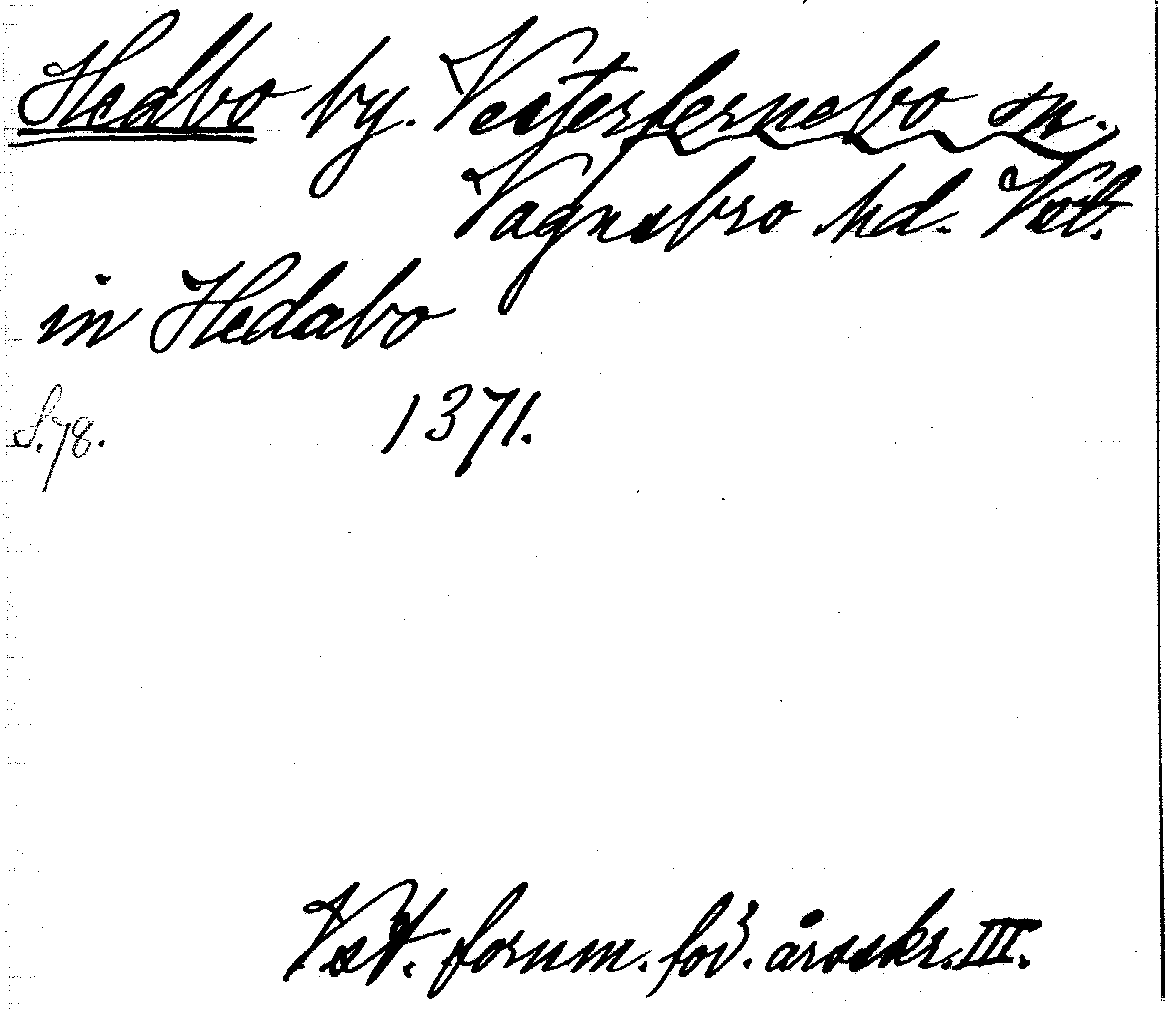 Hedbo by. Vesterfernebo sn.
Vagnsbro hd. Vstl.
in Hedabo
S. 78. 1371.
Vstl. fornm. för. årsskr. III.